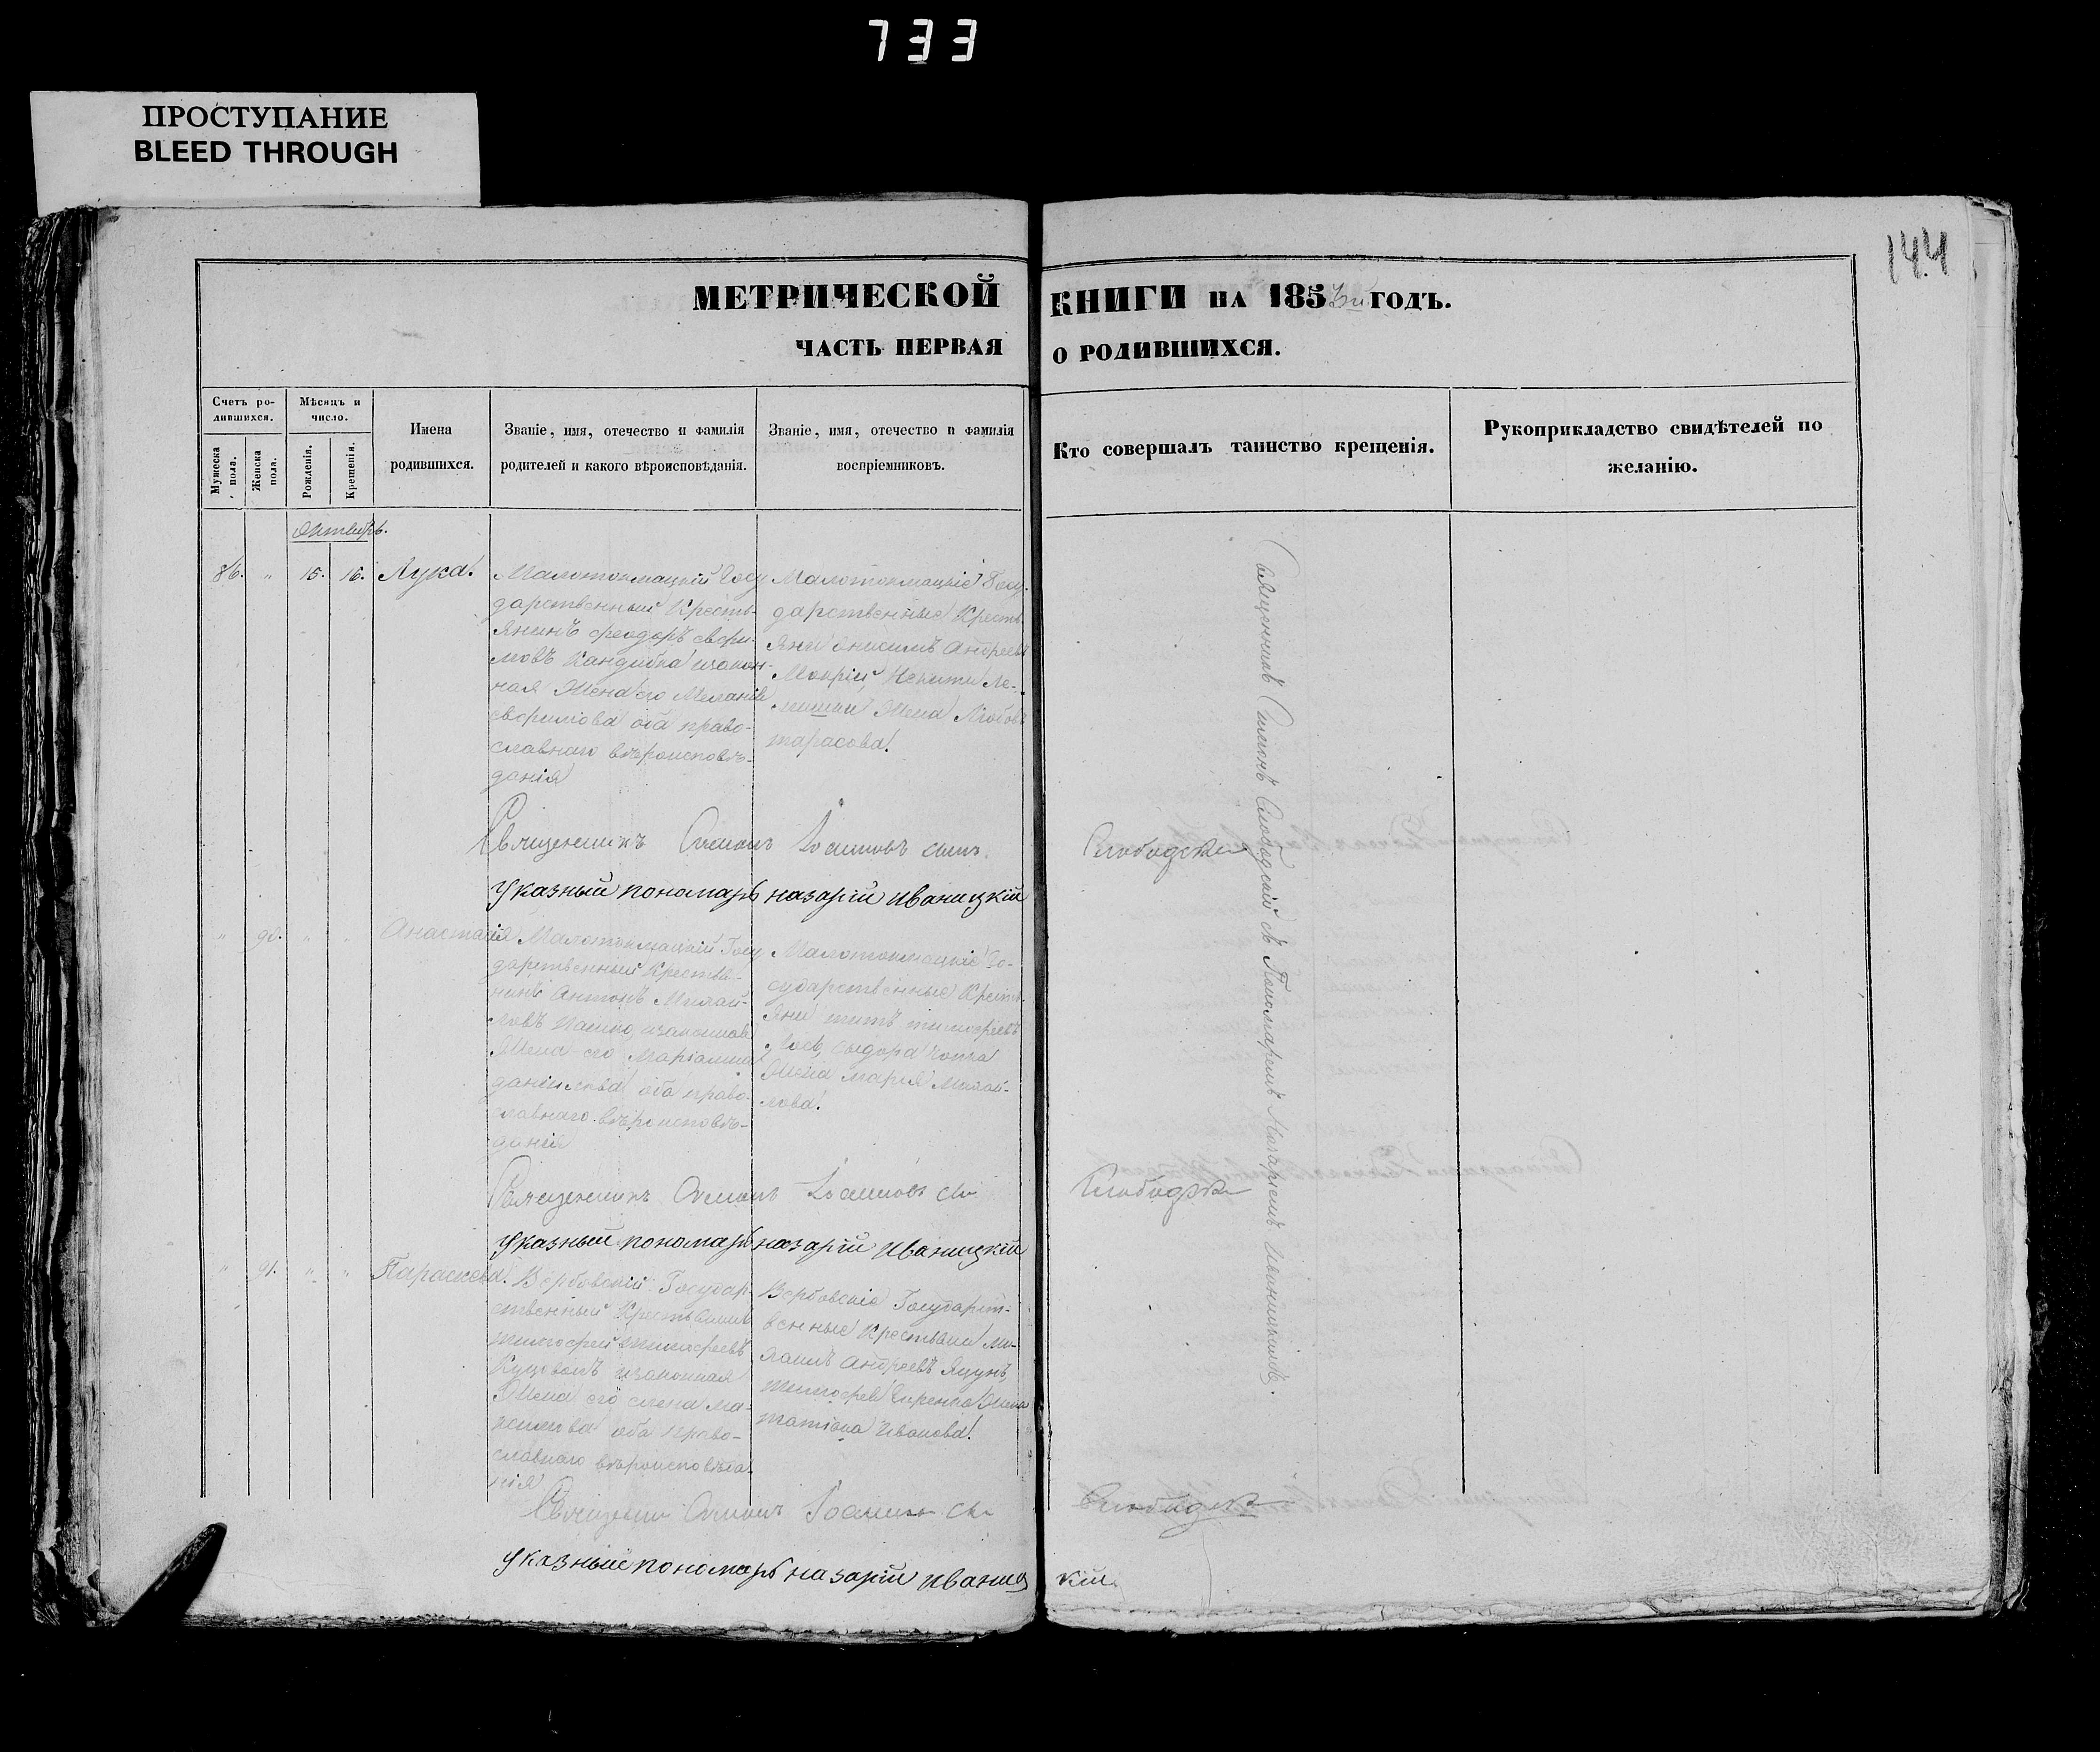 733
ПРОСТУПАНИЕ
BLEED THROUGH
144
МЕТРИЧЕСКОЙ КНИГИ НА 185 ГОДЪ.
ЧАСТЬ ПЕРВАЯ О РОДИВШИХСЯ.
Счетъ ро-
дившихся.
Мужеска
пола.
Женска
пола.
Мѣсяцъ и
число.
Рожденія.
Крещенія.
Имена
родившихся.
Званіе, имя, отечество и фамилія
родителей и какого вѣроисповѣданія.
Званіе, имя, отечество и фамилія
воспріемниковъ.
Кто совершалъ таинство крещенія.
Рукоприкладство свидѣтелей по
желанію.
Октябрь.
86. " 15. 16. Лука.
Малотокмацкій Госу
дарственный Кресть-
янинъ Феодоръ Ефи-
мовъ Кандыба изакон-
ная Жена его Меланія
Ефимова оба право-
славнаго вѣроисповѣ-
данія
Малотокмацкіе Госу-
дарственные Кресть
яни Онисимъ Андреевъ
Мокрій, Никиты Ле-
Жена Любовь
тарасова.
Священникъ Симонъ Іоанновъ сынъ Слободскій
Указный пономарь назарій иваницкій
" 90. " " Анастасія
Малотокмацкій Госу
дарственный Крестья-
нинъ Антонъ Михай-
ловъ изаконная
Жена его Маріанна
даніилова оба право
славнаго вѣроисповѣ-
данія
Малотокмацкіе Го-
сударственные Кресть-
яни титъ тимофеевъ
Лось, сыдора
Жена Марія Михай-
лова.
Священникъ Симонъ Іоанновъ Слободскій
Указный пономарь назарій иваницкій
" 91. " " Параскева.
Вербовскій Государ-
ственный Крестьянинъ
тимофей тимофеевъ
изаконная
Жена его елена ма-
ксимова оба право-
славнаго вѣроисповѣда-
нія
Вербовскіе Государст-
венные Крестьяни
Андреевъ Яцунъ,
тимофея Жена
татіана Иванова.
Священникъ Симонъ Іоанновъ Слободскій
Указный пономарь назарій иваницкій
Священникъ Симонъ Слободскій съ Пономаремъ Назаріемъ Иваницкимъ.